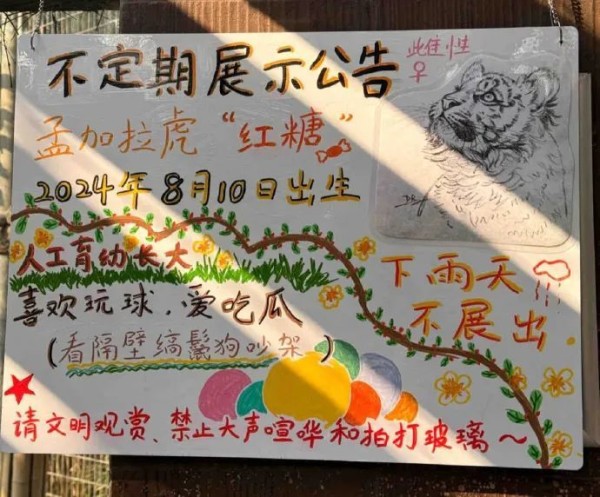 不定期展示公告
雌性
♀
孟加拉虎“红糖”
2024年8月10日出生
人工育幼长大
喜欢玩球，爱吃瓜
(看隔壁缟鬣狗吵架)
下雨天
不展出
请文明观赏、禁止大声喧哗和拍打玻璃～